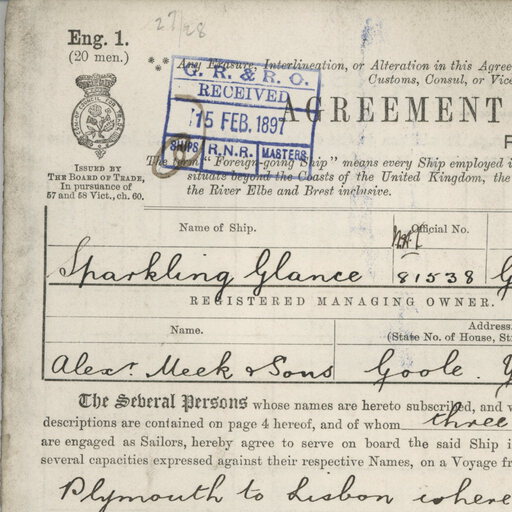 27/28
Eng. 1.
(20 men.)
Any Erasure, Interlineation, or Alteration in this Agree
Customs, Consul, or Vice
G. R. & R. O.
RECEIVED
15 FEB. 1897
SHIPS R.N.R. MASTERS
AGREEMENT
The term "Foreign-going Ship" means every Ship employed i
situate beyond the Coasts of the United Kingdom, the
the River Elbe and Brest inclusive.
ISSUED BY
THE BOARD OF TRADE,
In pursuance of
57 and 58 Vict., ch. 60.
Name of Ship. Official No.
Sparkling Glance 81538 G
REGISTERED MANAGING OWNER.
Name. Address
(State No. of House, St
Alexr. Meek & Sons Goole. Y
The Several Persons whose names are hereto subscribed, and
descriptions are contained on page 4 hereof, and of whom three
are engaged as Sailors, hereby agree to serve on board the said Ship i
several capacities expressed against their respective Names, on a Voyage fr
Plymouth to Lisbon where